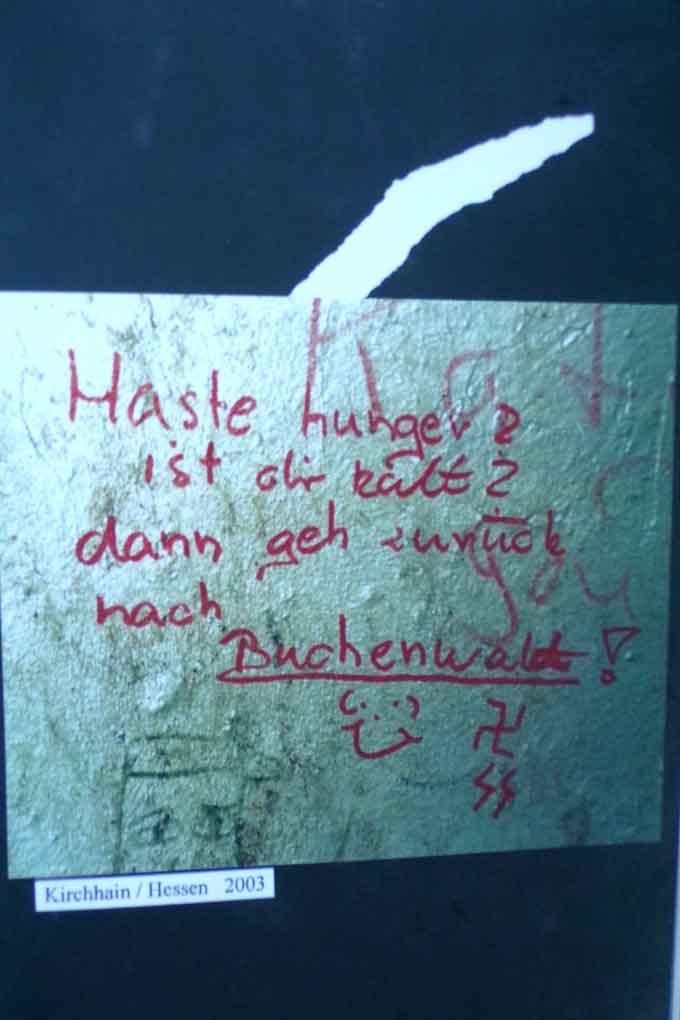 Haste hunger?
ist dir kalt?
dann geh zurück
nach
Buchenwald!
SS
Kirchhain / Hessen 2003